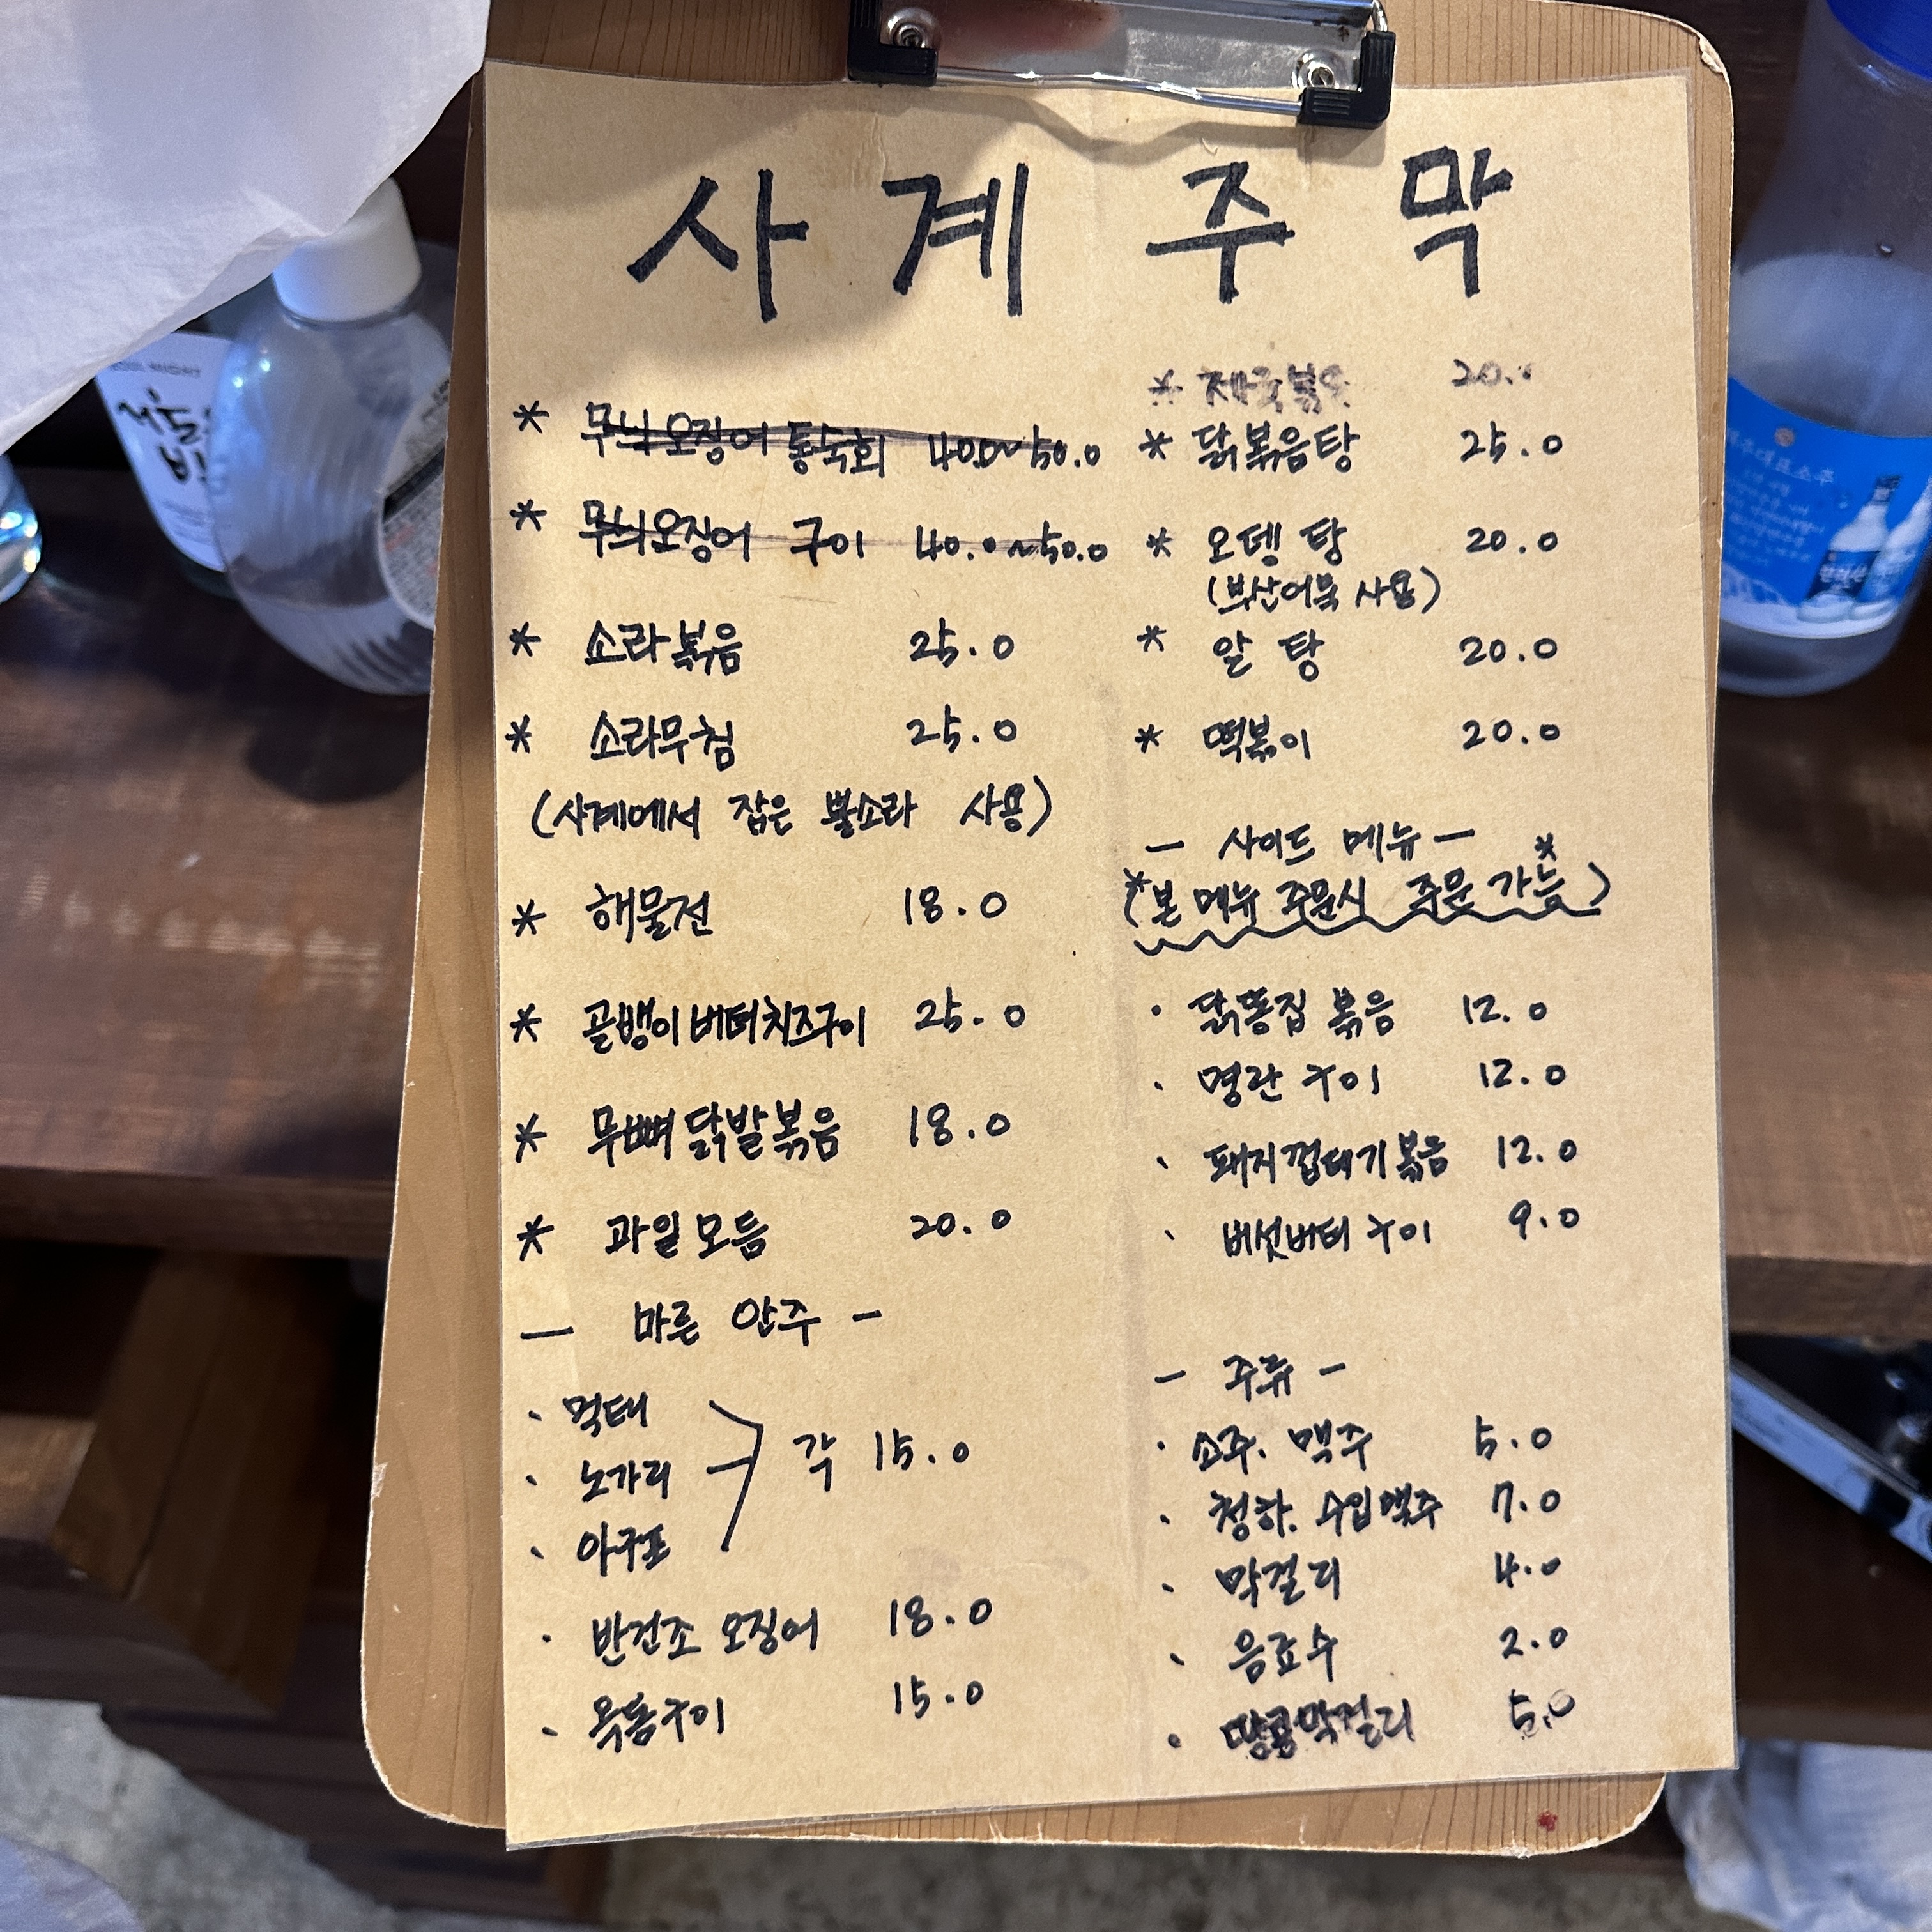 사계주막
* 무늬오징어 통숙회 40.0~50.0
* 무늬오징어 구이 40.0~50.0
* 소라볶음 25.0
* 소라무침 25.0
(사계에서 잡은 뿔소라 사용)
* 해물전 18.0
* 골뱅이버터치즈구이 25.0
* 무뼈닭발볶음 18.0
* 과일모듬 20.0
— 마른 안주 -
· 먹태
· 노가리
· 아구포
각 15.0
· 반건조 오징어 18.0
· 옥돔구이 15.0
* 제육볶음 20.
* 닭볶음탕 25.0
* 오뎅탕 20.0
(부산어묵 사용)
* 알탕 20.0
* 떡볶이 20.0
— 사이드 메뉴 —
(*본 메뉴 주문시 주문 가능*)
· 닭똥집 볶음 12.0
· 명란구이 12.0
· 돼지껍데기볶음 12.0
· 버섯버터구이 9.0
- 주류 -
· 소주. 맥주 5.0
· 청하. 수입맥주 7.0
· 막걸리 4.0
· 음료수 2.0
· 땅콩막걸리 5.0